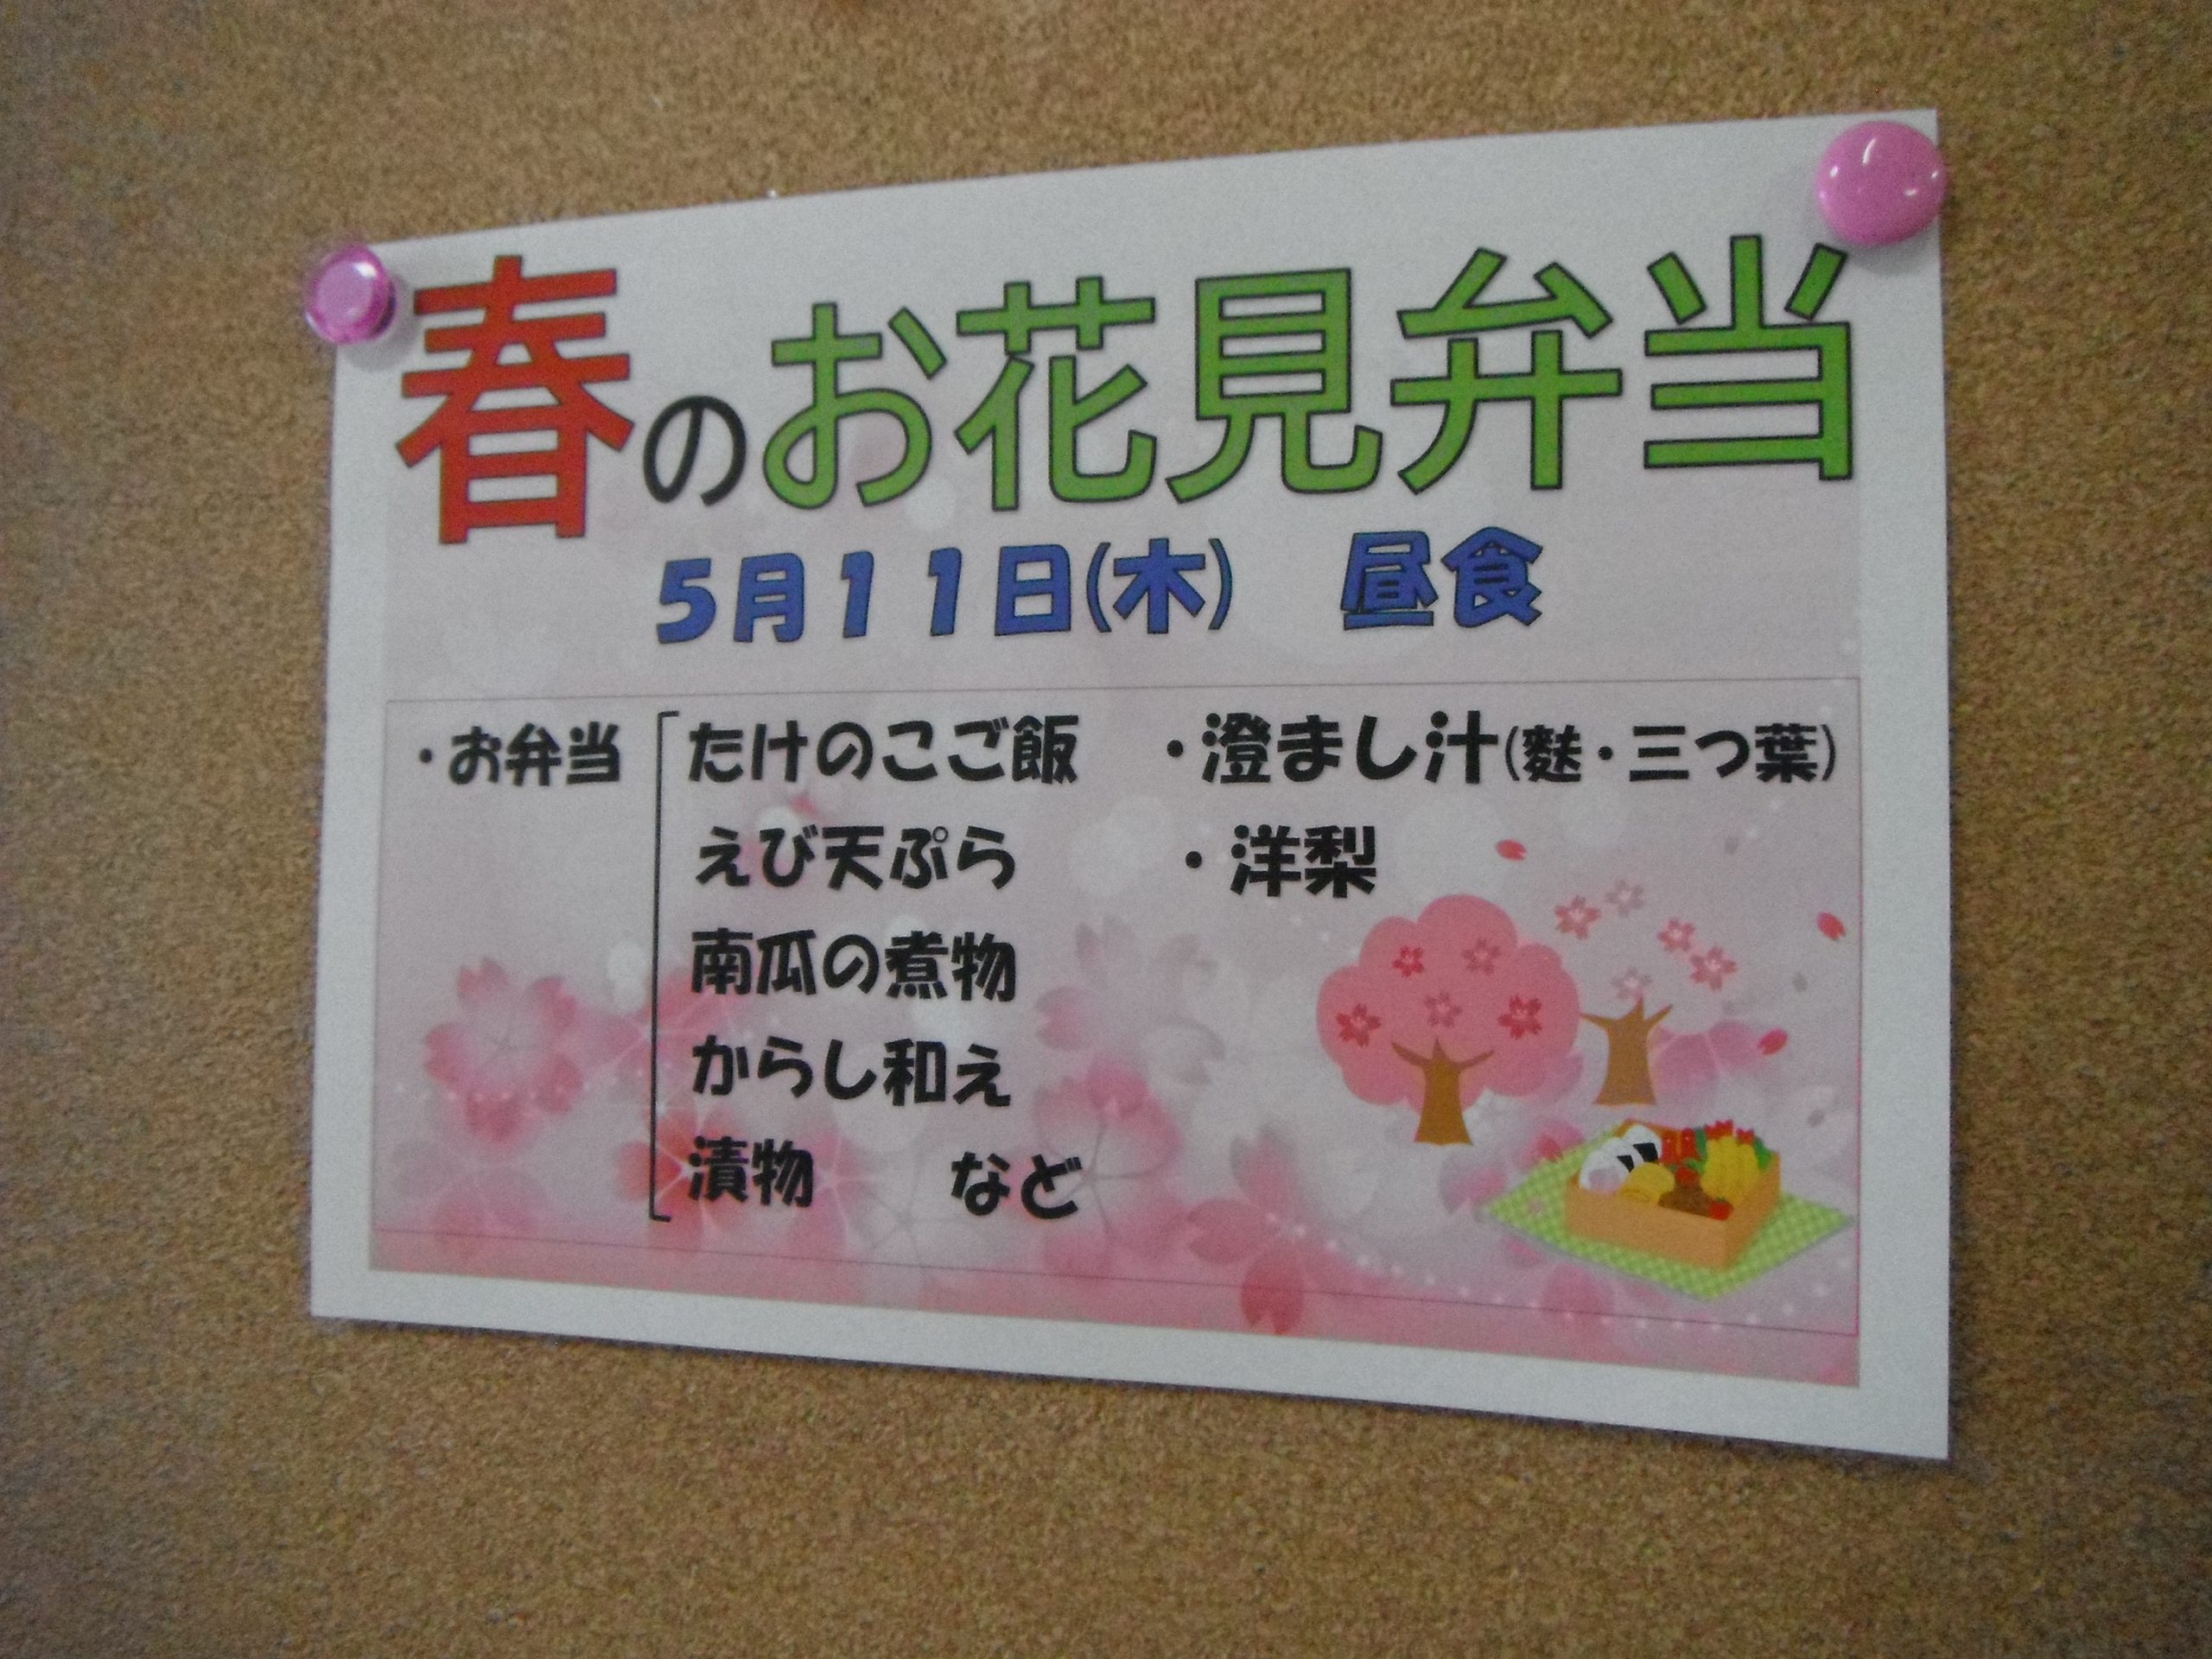 春のお花見弁当
5月11日(木)　昼食
・お弁当
たけのこご飯
えび天ぷら
南瓜の煮物
からし和え
漬物　など
・澄まし汁(麩・三つ葉)
・洋梨